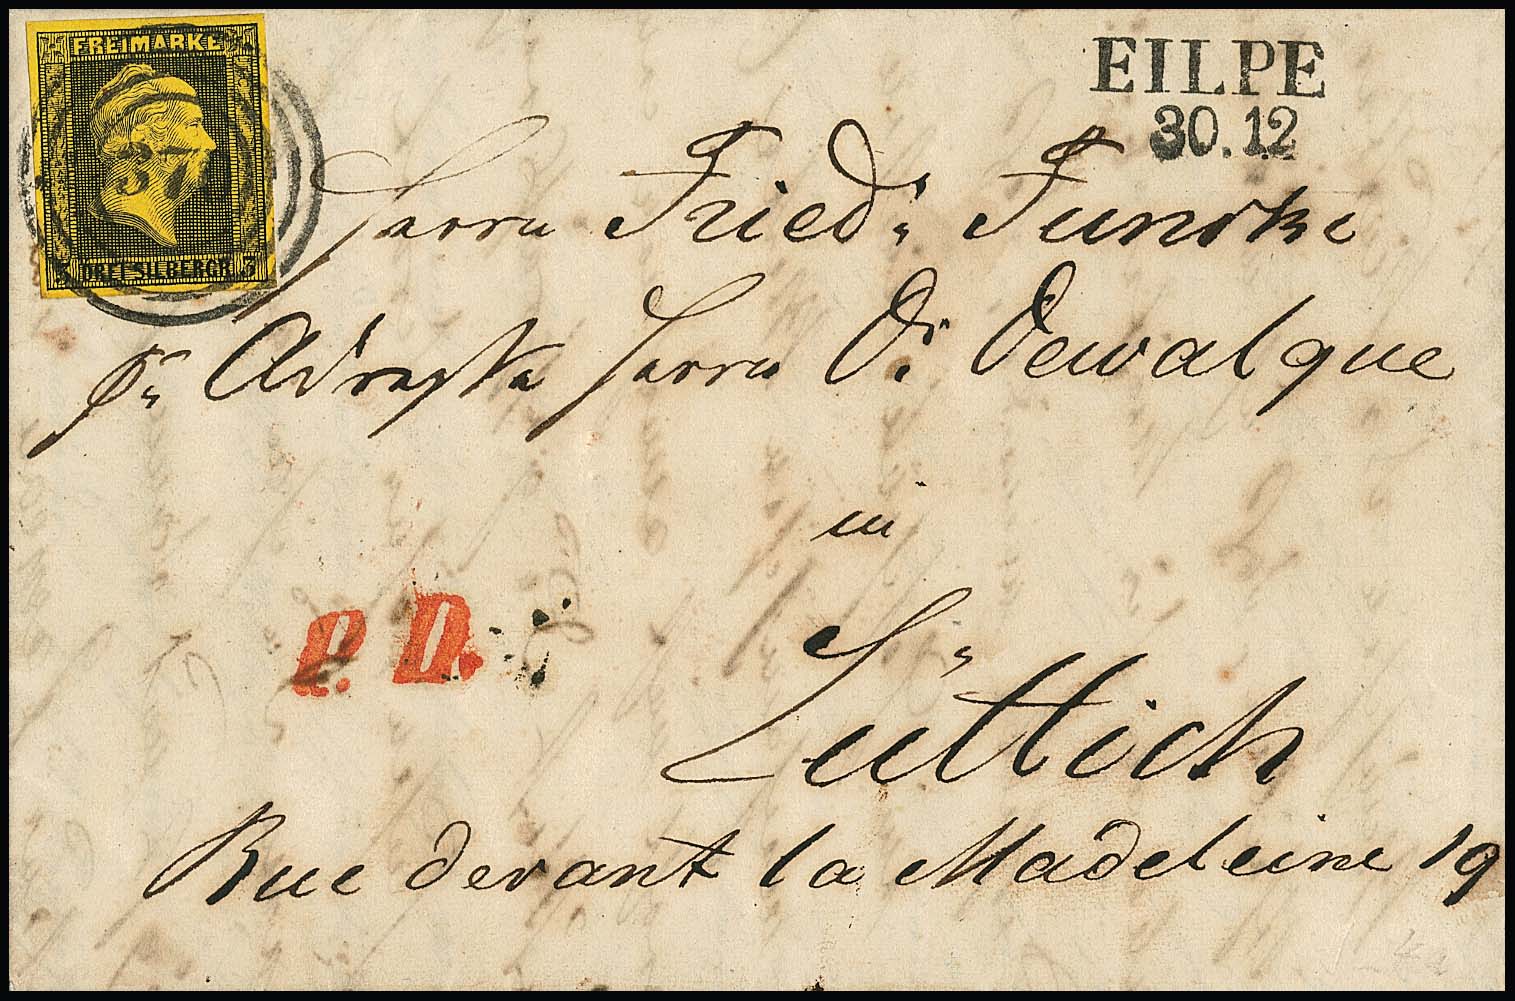 FREIMARKE
3 DREI SILBERGR. 3
EILPE
30.12
Herrn Friedr. Funcke
pr Adresse Herrn D. Dewalque
in
P.D.
Lüttich
Rue devant la Madeleine 19